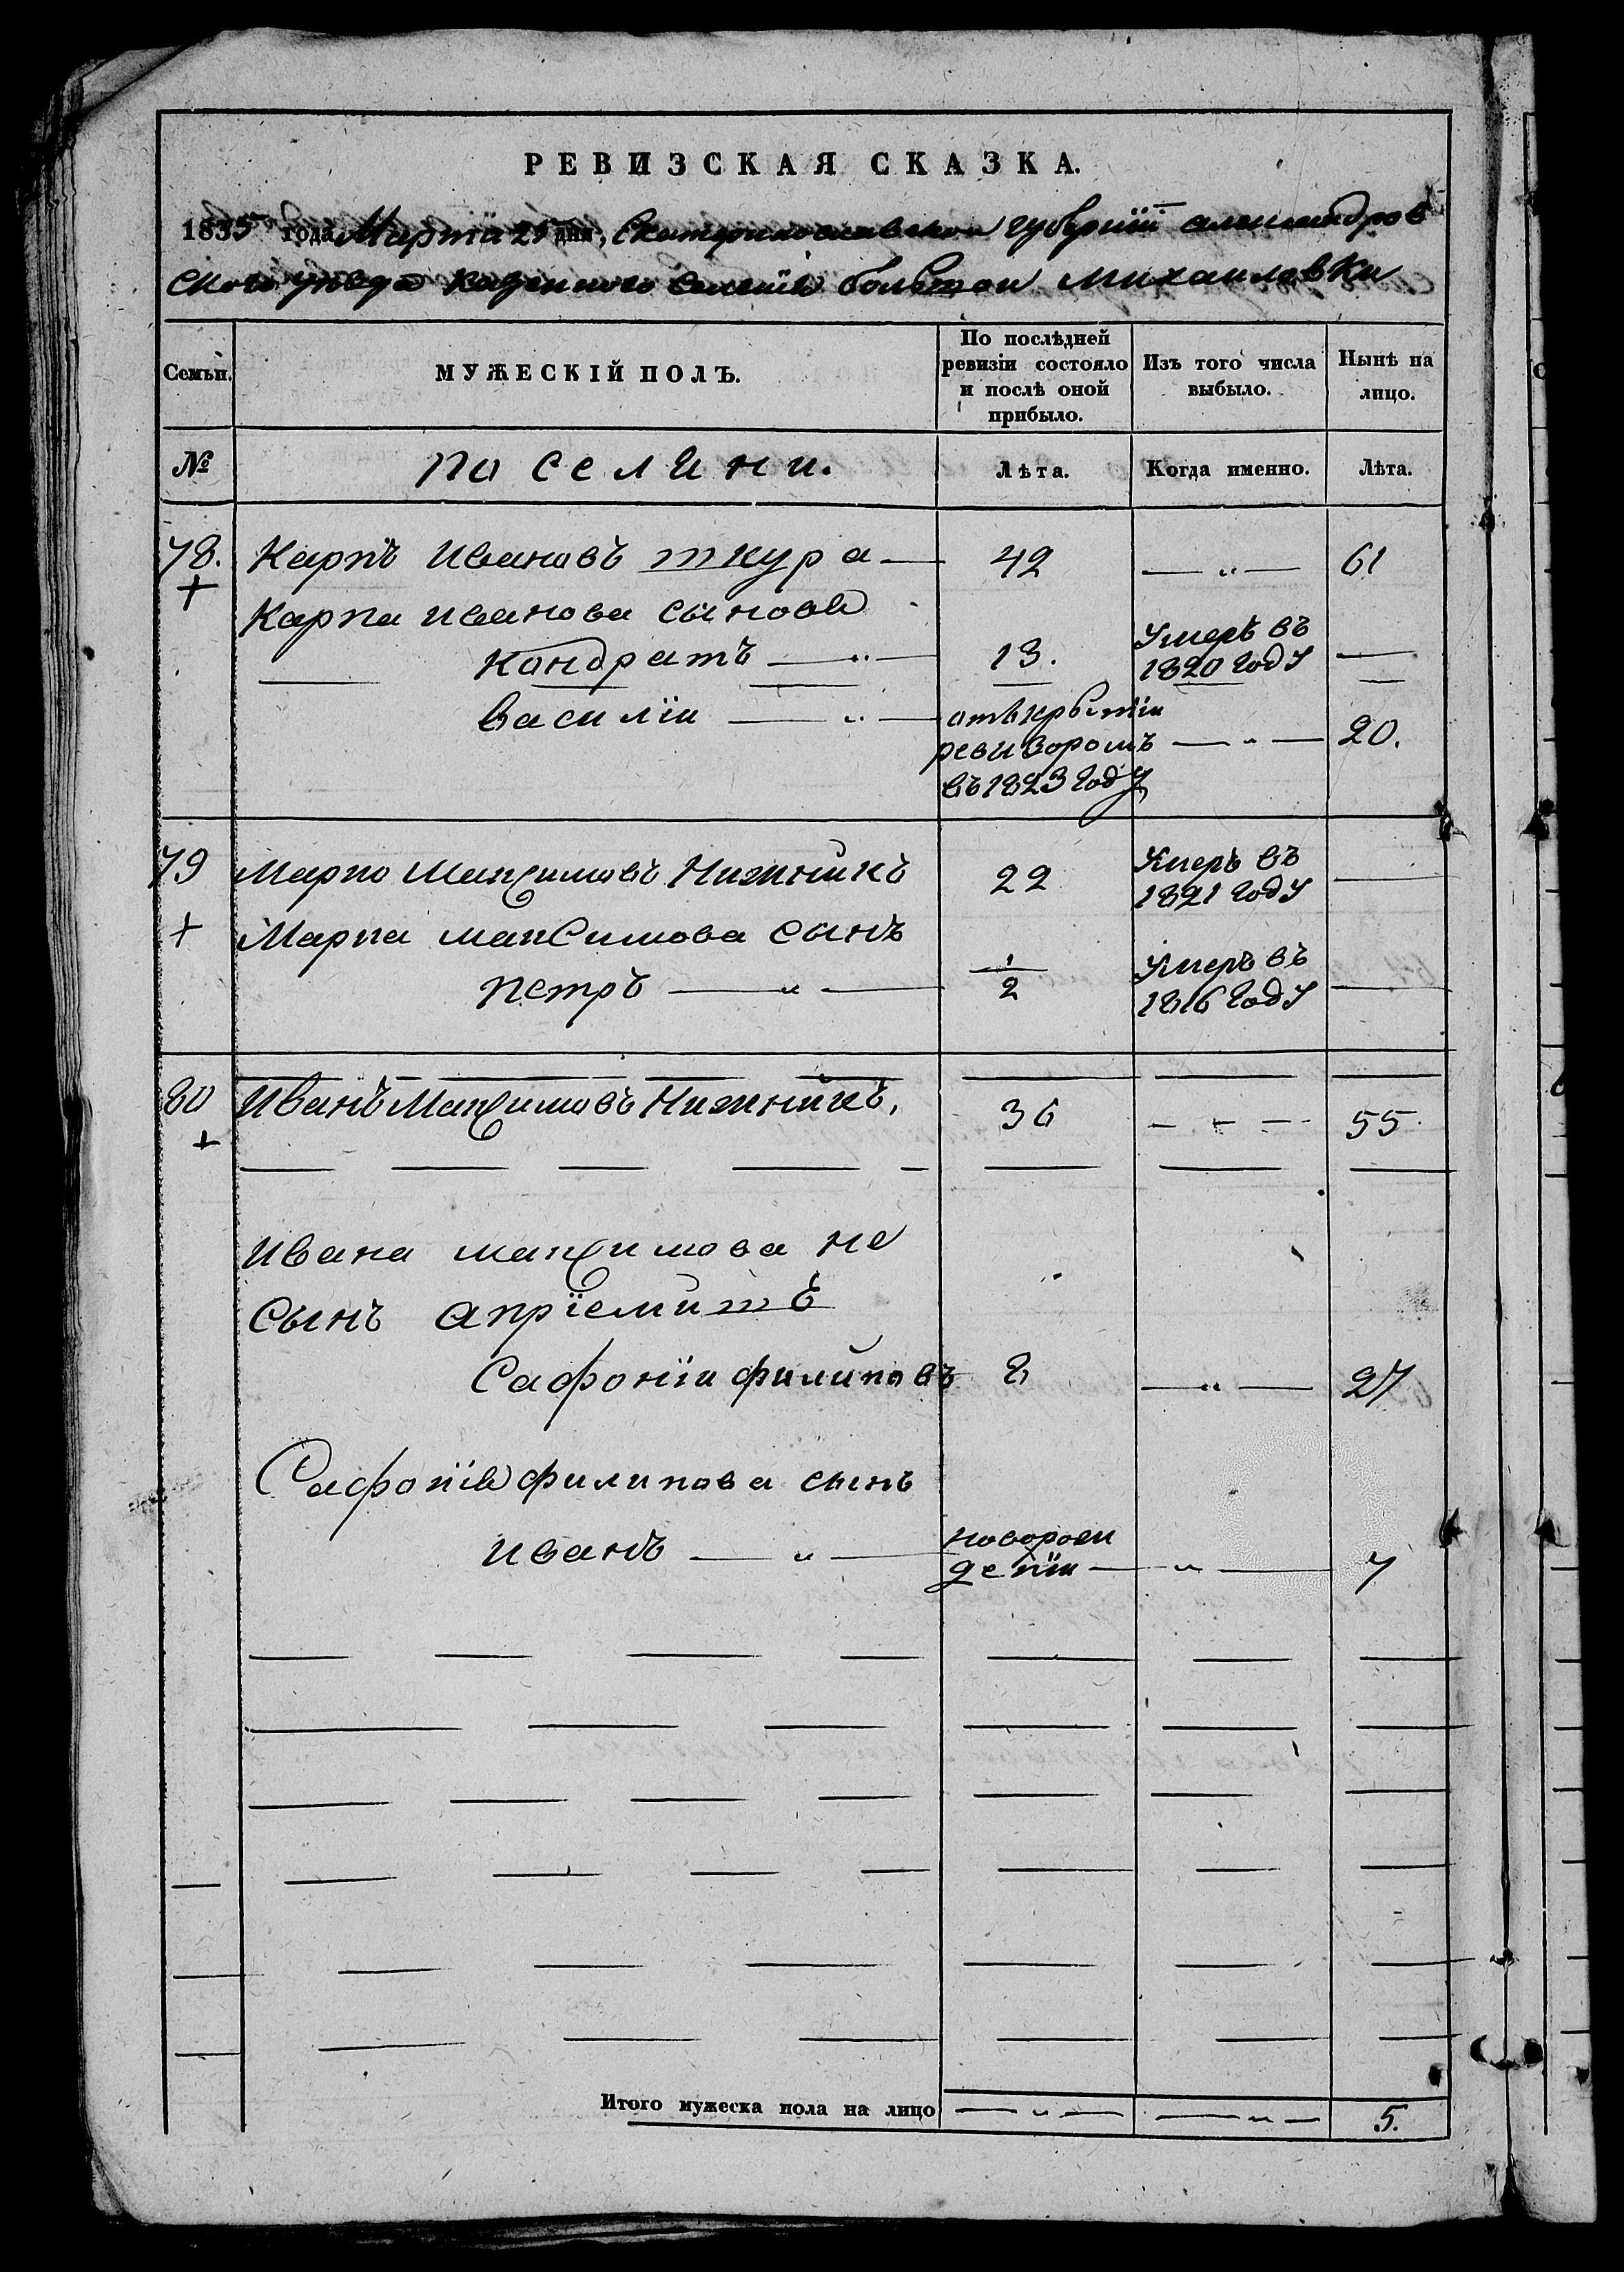 РЕВИЗСКАЯ СКАЗКА.
1835 года Марта 29 дня, Екатеринославскои губернїи александров
ского уезда казенного селенїя большои михаиловки
Семьи.
МУЖЕСКІЙ ПОЛЪ.
По послѣдней ревизіи состояло и послѣ оной прибыло.
Изъ того числа выбыло.
Нынѣ на лицо.
№
поселяни.
Лѣта.
Когда именно.
Лѣта.
78. Карпъ Ивановъ шкура — 42 — „ — 61
Карпа иванова сыновя
кондратъ — „ — 13. Умеръ въ 1820 году —
василїи — „ — отъкрытїи ревизоромъ въ 1823 году — „ — 20.
79 Марко Максимовъ Нижникъ 22 Умеръ въ 1821 году —
Марка максимова сынъ
петръ — „ — 1/2 Умеръ въ 1816 году —
80 Иванъ Максимовъ Нижникъ, 36 — — — 55.
Ивана максимова не
сынъ апріемишъ
Сафонїи филиповъ 8 — „ — 27
Сафонїя филипова сынъ
иванъ — „ — новорож
денїи — „ — 7
Итого мужеска пола на лицо — „ — — „ — 5.